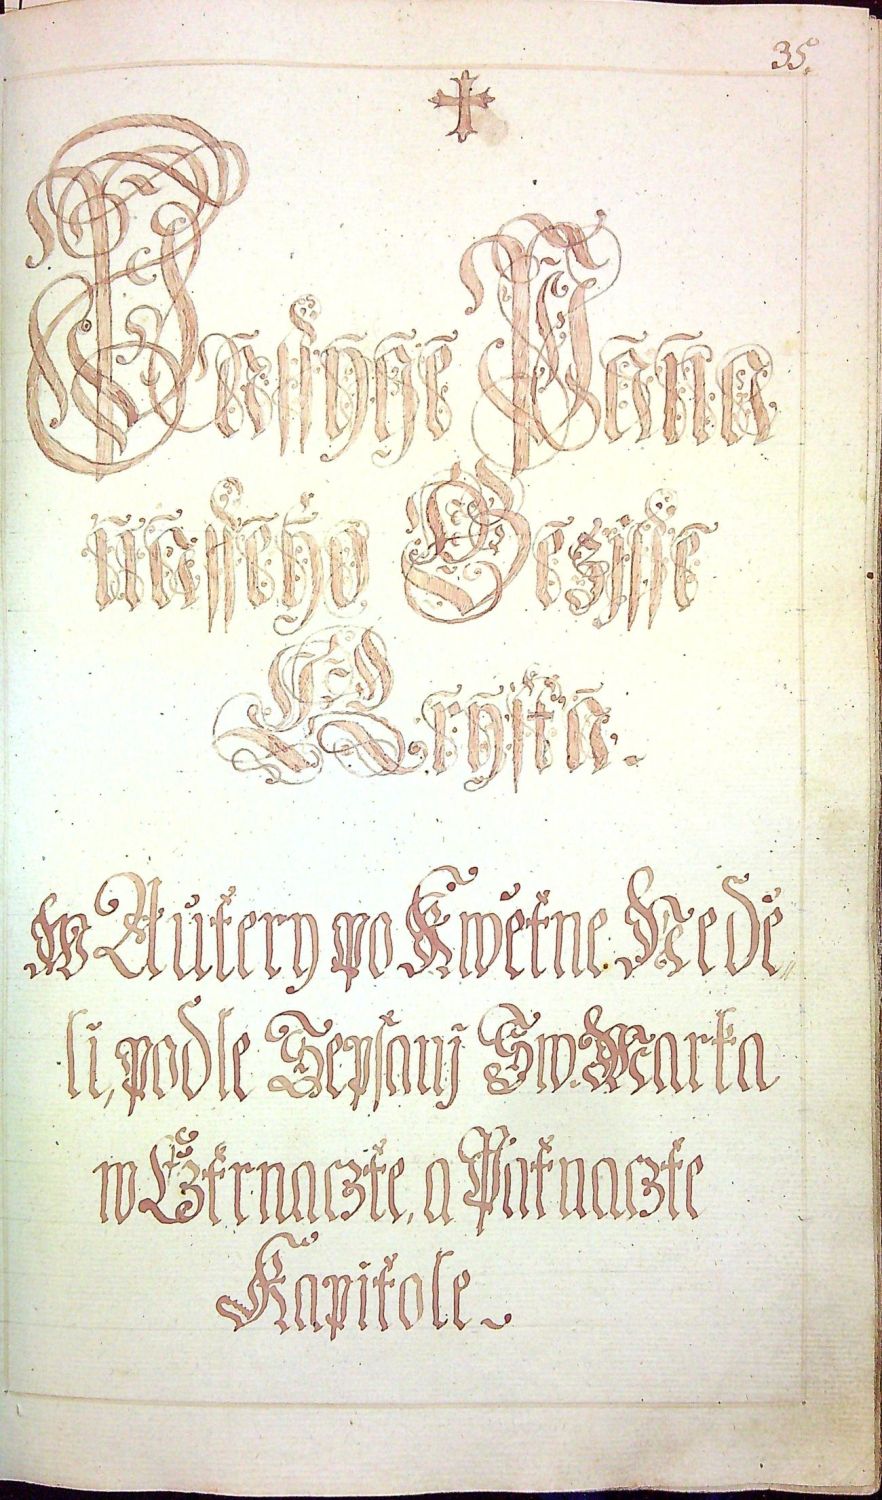 35.
Passyge Pana
nasseho Gezisse
Krysta.
W Autery po Kwětne Nedě,,
li, podle Sepsanj Sw. Marka
w Cžtrnaczte, a Patnaczte
Kapitole.